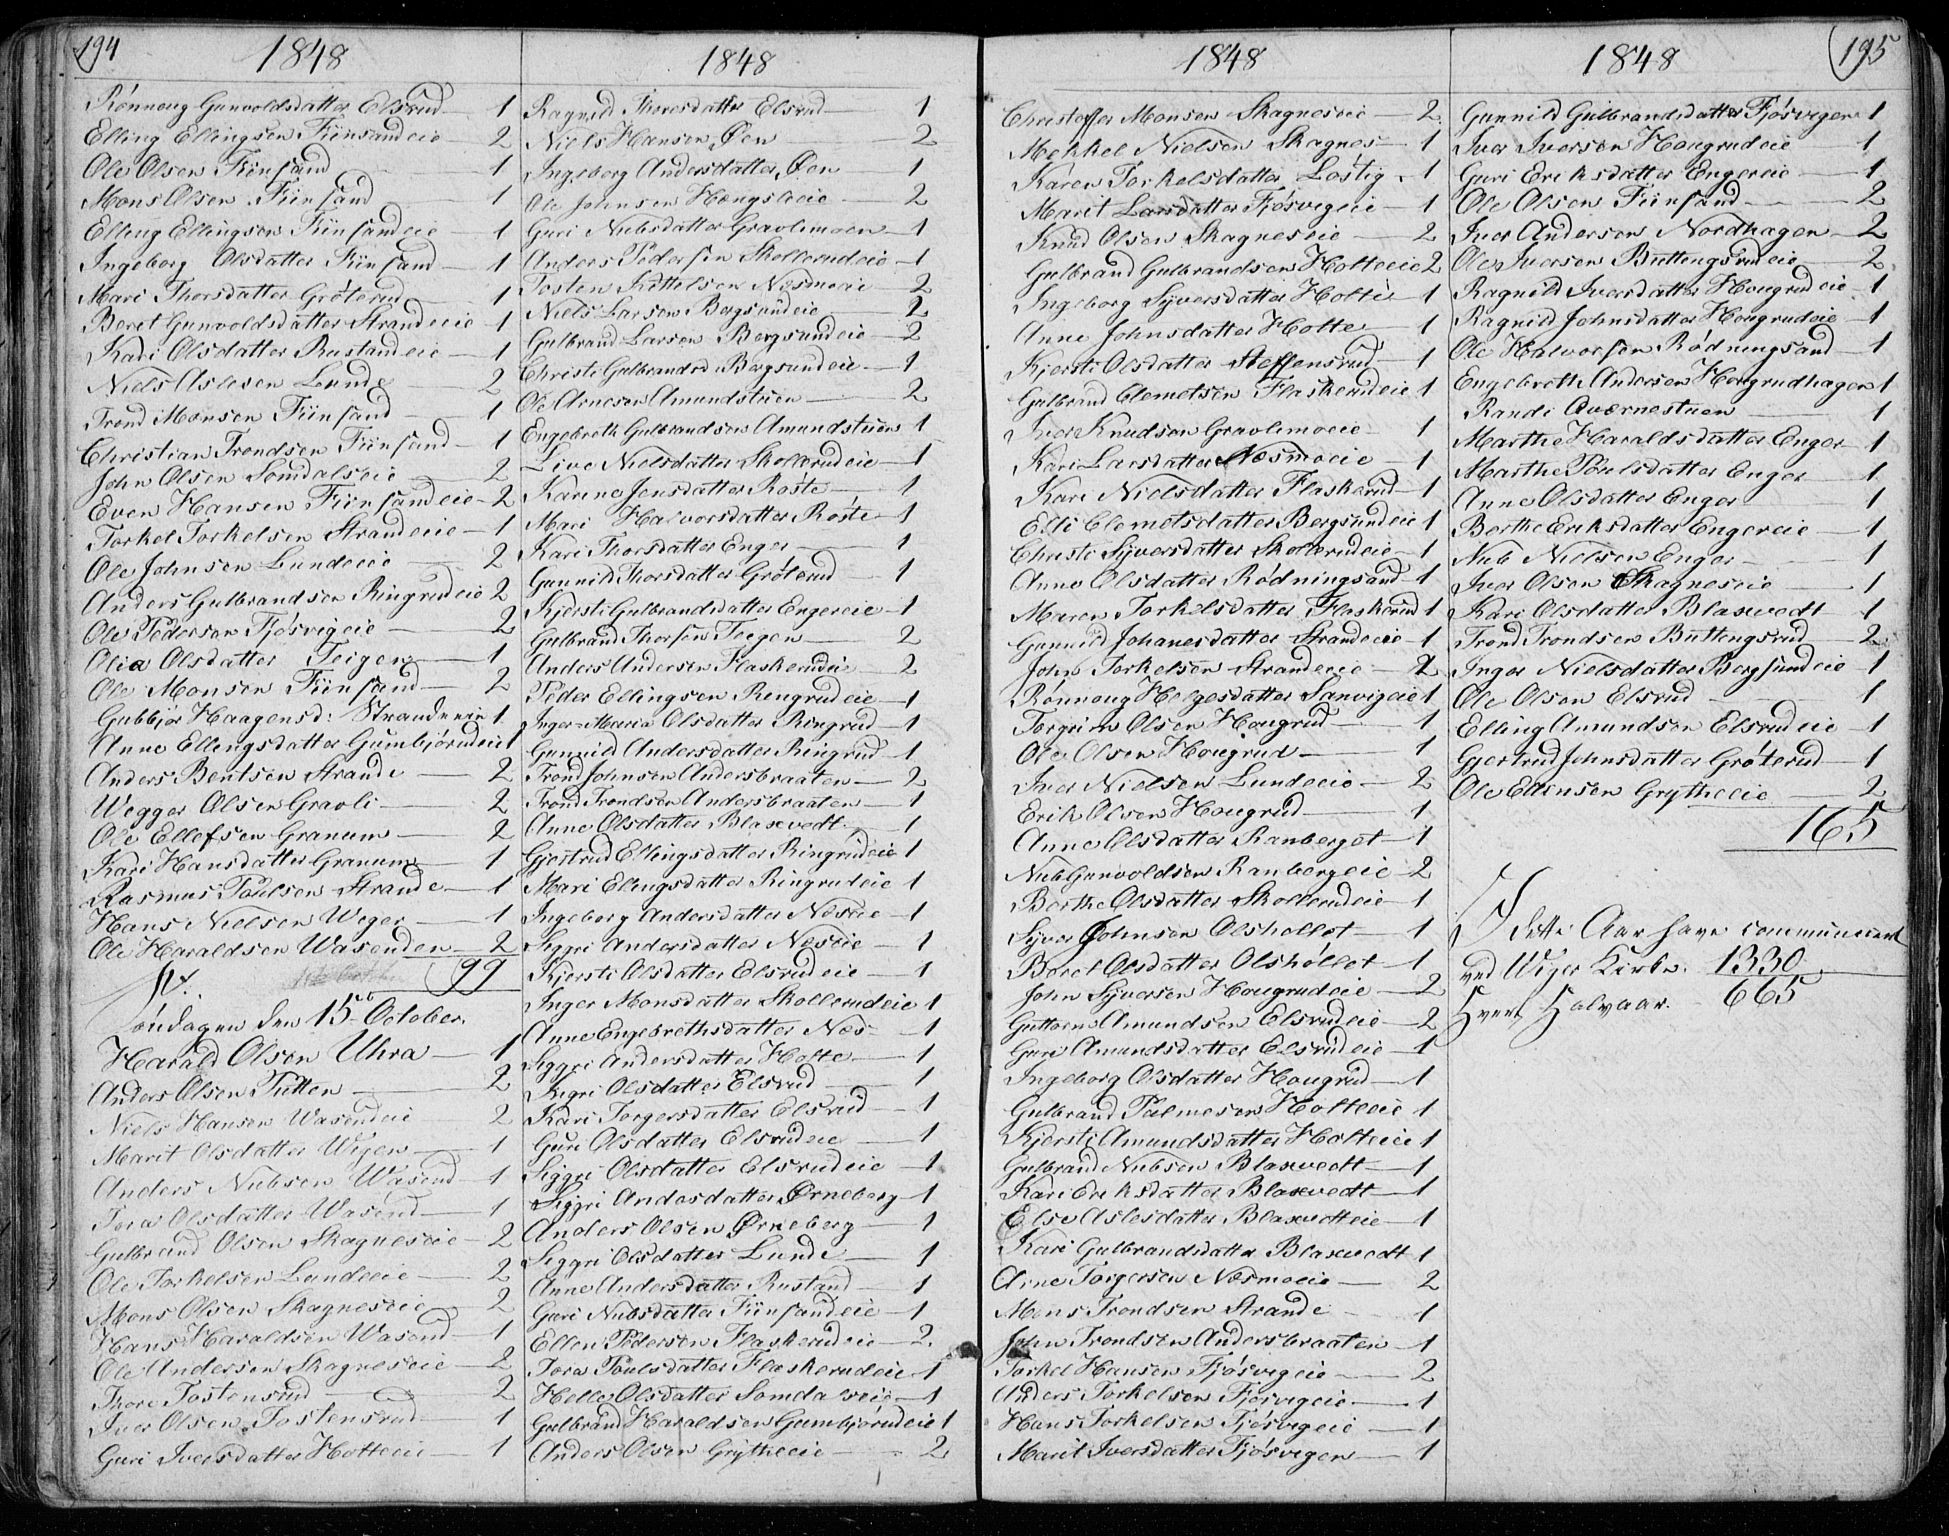 194
1848
Rönnoug Gunvoldsdatter Elsrud 1
Elling Ellingsen Fiinsandeie 2
Ole Olsen Fiinsand 1
Mons Olsen Fiinsand 1
Elling Ellingsen Fiinsandeie 1
Ingeborg Olsdatter Fiinsand 1
Mari Thorsdatter Gröterud 1
Beret Gunvoldsdatter Strandeeie 1
Kari Olsdatter Rustandeie 1
Niels Aslesen Lunde 2
Trond Monsen Fiinsand 1
Christian Trondsen Fiinsand 1
John Olsen Somdalseie 2
Even Hansen Fiinsandeie 2
Torkel Torkelsen Strandeeie 1
Ole Johnsen Lundeeie 2
Anders Gulbrandsen Ringrudeie 2
Ole Pedersen Fjösvigeie 2
Olia Olsdatter Teigen 1
Ole Monsen Fiinsand 2
Gubbjör Haagensd: Strandeeie 1
Anne Ellingsdatter Gumbjörudeie 1
Anders Bentsen Strande 2
Wegger Olsen Gravli 2
Ole Ellefsen Granum 2
Kari Hansdatter Granum 1
Rasmus Poulsen Strande 1
Hans Nielsen Weger 1
Ole Haraldsen Wasenden 2
99
Söndagen den 15 October.
Harald Olsen Uhra 1
Anders Olsen Putten 2
Niels Hansen Wasendeie 2
Marit Olsdatter Wigen 1
Anders Nubsen Wasend 1
Tora Olsdatter Wasend 1
Gulbrand Olsen Skagneseie 2
Ole Torkelsen Lundeeie 2
Mons Olsen Skagneseie 2
Hans Haraldsen Wasend 1
Ole Andersen Skagneseie 2
Thore Tostensrud 2
Iver Olsen Tostensrud 1
Guri Iversdatter Holteeie 1
1848
Ragnild Thoresdatter Elsrud 1
Niels Hansen Öen 2
Ingeborg Andersdatter Öen 1
Ole Johnsen Hængsleeie 2
Guri Nubsdatter Gravlimoen 1
Anders Pedersen Skollerudeie 1
Tosten Kittelsen Næsmoeie 2
Niels Larsen Bergsundeie 2
Gulbrand Larsen Bergsundeie 2
Christi Gulbrandsd Bergsundeie 1
Ole Arnesen Amundstuen 2
Engebreth Gulbrandsen Amundstuen 1
Live Nielsdatter Skollerudeie 1
Karine Jensdatter Röste 1
Mari Halvorsdatter Röste 1
Kari Thorsdatter Enger 1
Gunnild Thorsdatter Gröterud 1
Kjersti Gulbrandsdatter Engereie 1
Gulbrand Thorsen Teigen 2
Anders Andersen Flaskerudeie 2
Peder Ellingsen Ringrudeie 1
Inger-Maria Olsdatter Ringrud 1
Gunnild Andersdatter Ringrud 1
Trond Johnsen Andersbraaten 2
Trond Trondsen Andersbraaten 1
Anne Olsdatter Blaxevedt 1
Gjertrud Ellingsdatter Ringrudeie 1
Mari Elingsdatter Ringrudeie 1
Ingeborg Andersdatter Næseie 1
Siggri Andersdatter Næseie 1
Kjersti Olsdatter Elsrudeie 1
Inger Monsdatter Skollerudeie 1
Anne Engebrethsdatter Næs 1
Siggri Andersdatter Holte 1
Sigri Olsdatter Elsrud 1
Kari Torgersdatter Elsrud 1
Guri Olsdatter Elsrudeie 1
Siggri Olsdatter Elsrudeie 1
Siggri Andesdatter Örneberg 1
Anders Olsen Örneberg 1
Siggri Olsdatter Lunde 1
Anne Andersdatter Rustand 1
Guri Nubsdatter Fiinsandeie 1
Ellen Pedersen Flaskerudeie 2
Tora Poulsdatter Flaskerudeie 1
Helle Olsdatter Somdalseie 1
Gulbrand Haraldsen Gumbjörudeie 1
Anders Olsen Grytheeie 2
1848
Christoffer Monsen Skagneseie 2
Mekkel Nielsen Skagnes 1
Karen Torkelsdatter Löstig 1
Marit Larsdatter Fjösvigeie 1
Knud Olsen Skagneseie 2
Gulbrand Gulbrandsen Holteeie 2
Ingeborg Syversdatter Holte 1
Anne Johnsdatter Holte 1
Kjersti Olsdatter Steffensrud 1
Gulbrand Clemetsen Flaskerudeie 1
Iver Knudsen Gravlimoeie 1
Kari Larsdatter Næsmoeie 1
Kari Nielsdatter Flaskerud 1
Elli Clemetsdatter Bergsundeie 1
Christi Syversdatter Skollerudeie 1
Anne Olsdatter Rödningsand 1
Maren Torkelsdatter Flaskerud 1
Gunnild Johanesdatter Strandeeie 1
John Torkelsen Strandeeie 2
Rönnoug Helgesdatter Sanvigeie 1
Torgrim Olsen Hougrud 1
Ole Olsen Hougrud 1
Iver Nielsen Lundeeie 2
Erik Olsen Hougrud 1
Anne Olsdatter Ranberget 1
Nub Gunvoldsen Ranbergeie 2
Berthe Olsdatter Skollerudeie 1
Syver Johnsen Olshollet 1
Beret Olsdatter Olshöllet 1
John Syversen Hougrudeie 2
Guttorm Amundsen Elsrudeie 2
Guri Amundsdatter Elsrudeie 1
Ingeborg Olsdatter Hougrud 1
Gulbrand Palmesen Holteeie 1
Kjersti Amundsdatter Holteeie 1
Gulbrand Nubsen Blaxevedt 1
Kari Eriksdatter Blaxevedt 1
Else Aslesdatter Blaxevedteie 1
Kari Gulbrandsdatter Blaxevedt 1
Arne Torgersen Næsmoeie 2
Mons Trondsen Strande 1
John Trondsen Andersbraaten 1
Torkel Hansen Fjösvigeie 2
Anders Torkelsen Fjösvigeie 1
Hans Torkelsen Fjösvigeie 1
Marit Iversdatter Fjösvigen 1
1848
195
Gunnild Gulbrandsdatter Fjösvigen 1
Iver Iversen Hougrudeie 1
Guri Eriksdatter Engereie 1
Ole Olsen Fiinsand 2
Iver Andersen Nordhagen 2
Ole Iversen Buttengsrudeie 2
Ragnild Iversdatter Hougrudeie 1
Ragnild Johnsdatter Hougrudeie 1
Ole Halvorsen Rödningsand 1
Engebreth Andersen Hougrudhagen 1
Randi Qværnestuen 1
Marthe Haraldsdatter Enger 1
Marthe Poulsdatter Enger 1
Anne Olsdatter Enger 1
Berthe Eriksdatter Engereie 1
Nub Nielsen Enger 1
Iver Olsen Skagneseie 1
Kari Olsdatter Blaxevedt 1
Trond Trondsen Buttengsrud 2
Inger Nielsdatter Bergsundeie 1
Ole Olsen Elsrud 1
Elling Amundsen Elsrudeie 1
Gjertrud Johnsdatter Gröterud 1
Ole Ellensen Grytheeie 2
165
I dette Aar have communiceret
ved Wiger Kirke. 1330
Hvert Halvaar. 665